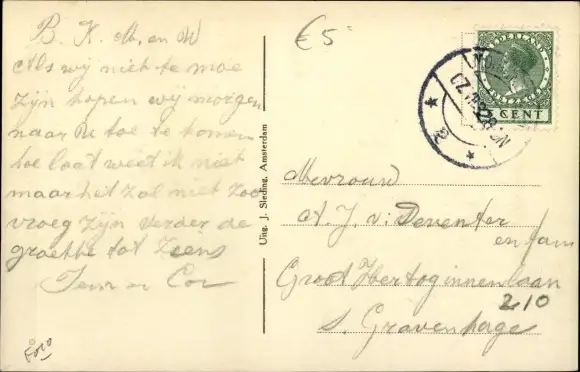 B. K. M. en W
Als wij niet te moe
zijn hopen wij morgen
naar U toe te komen
hoe laat weet ik niet
maar het zal niet zoo
vroeg zijn verder de
groeten tot Ziens
en Cor
€5
Uitg. J. Sleding, Amsterdam
NEDERLAND
CENT
Mevrouw
A. J. v. Deventer
en fam
Groot Hertoginnenlaan
210
s. Gravenhage